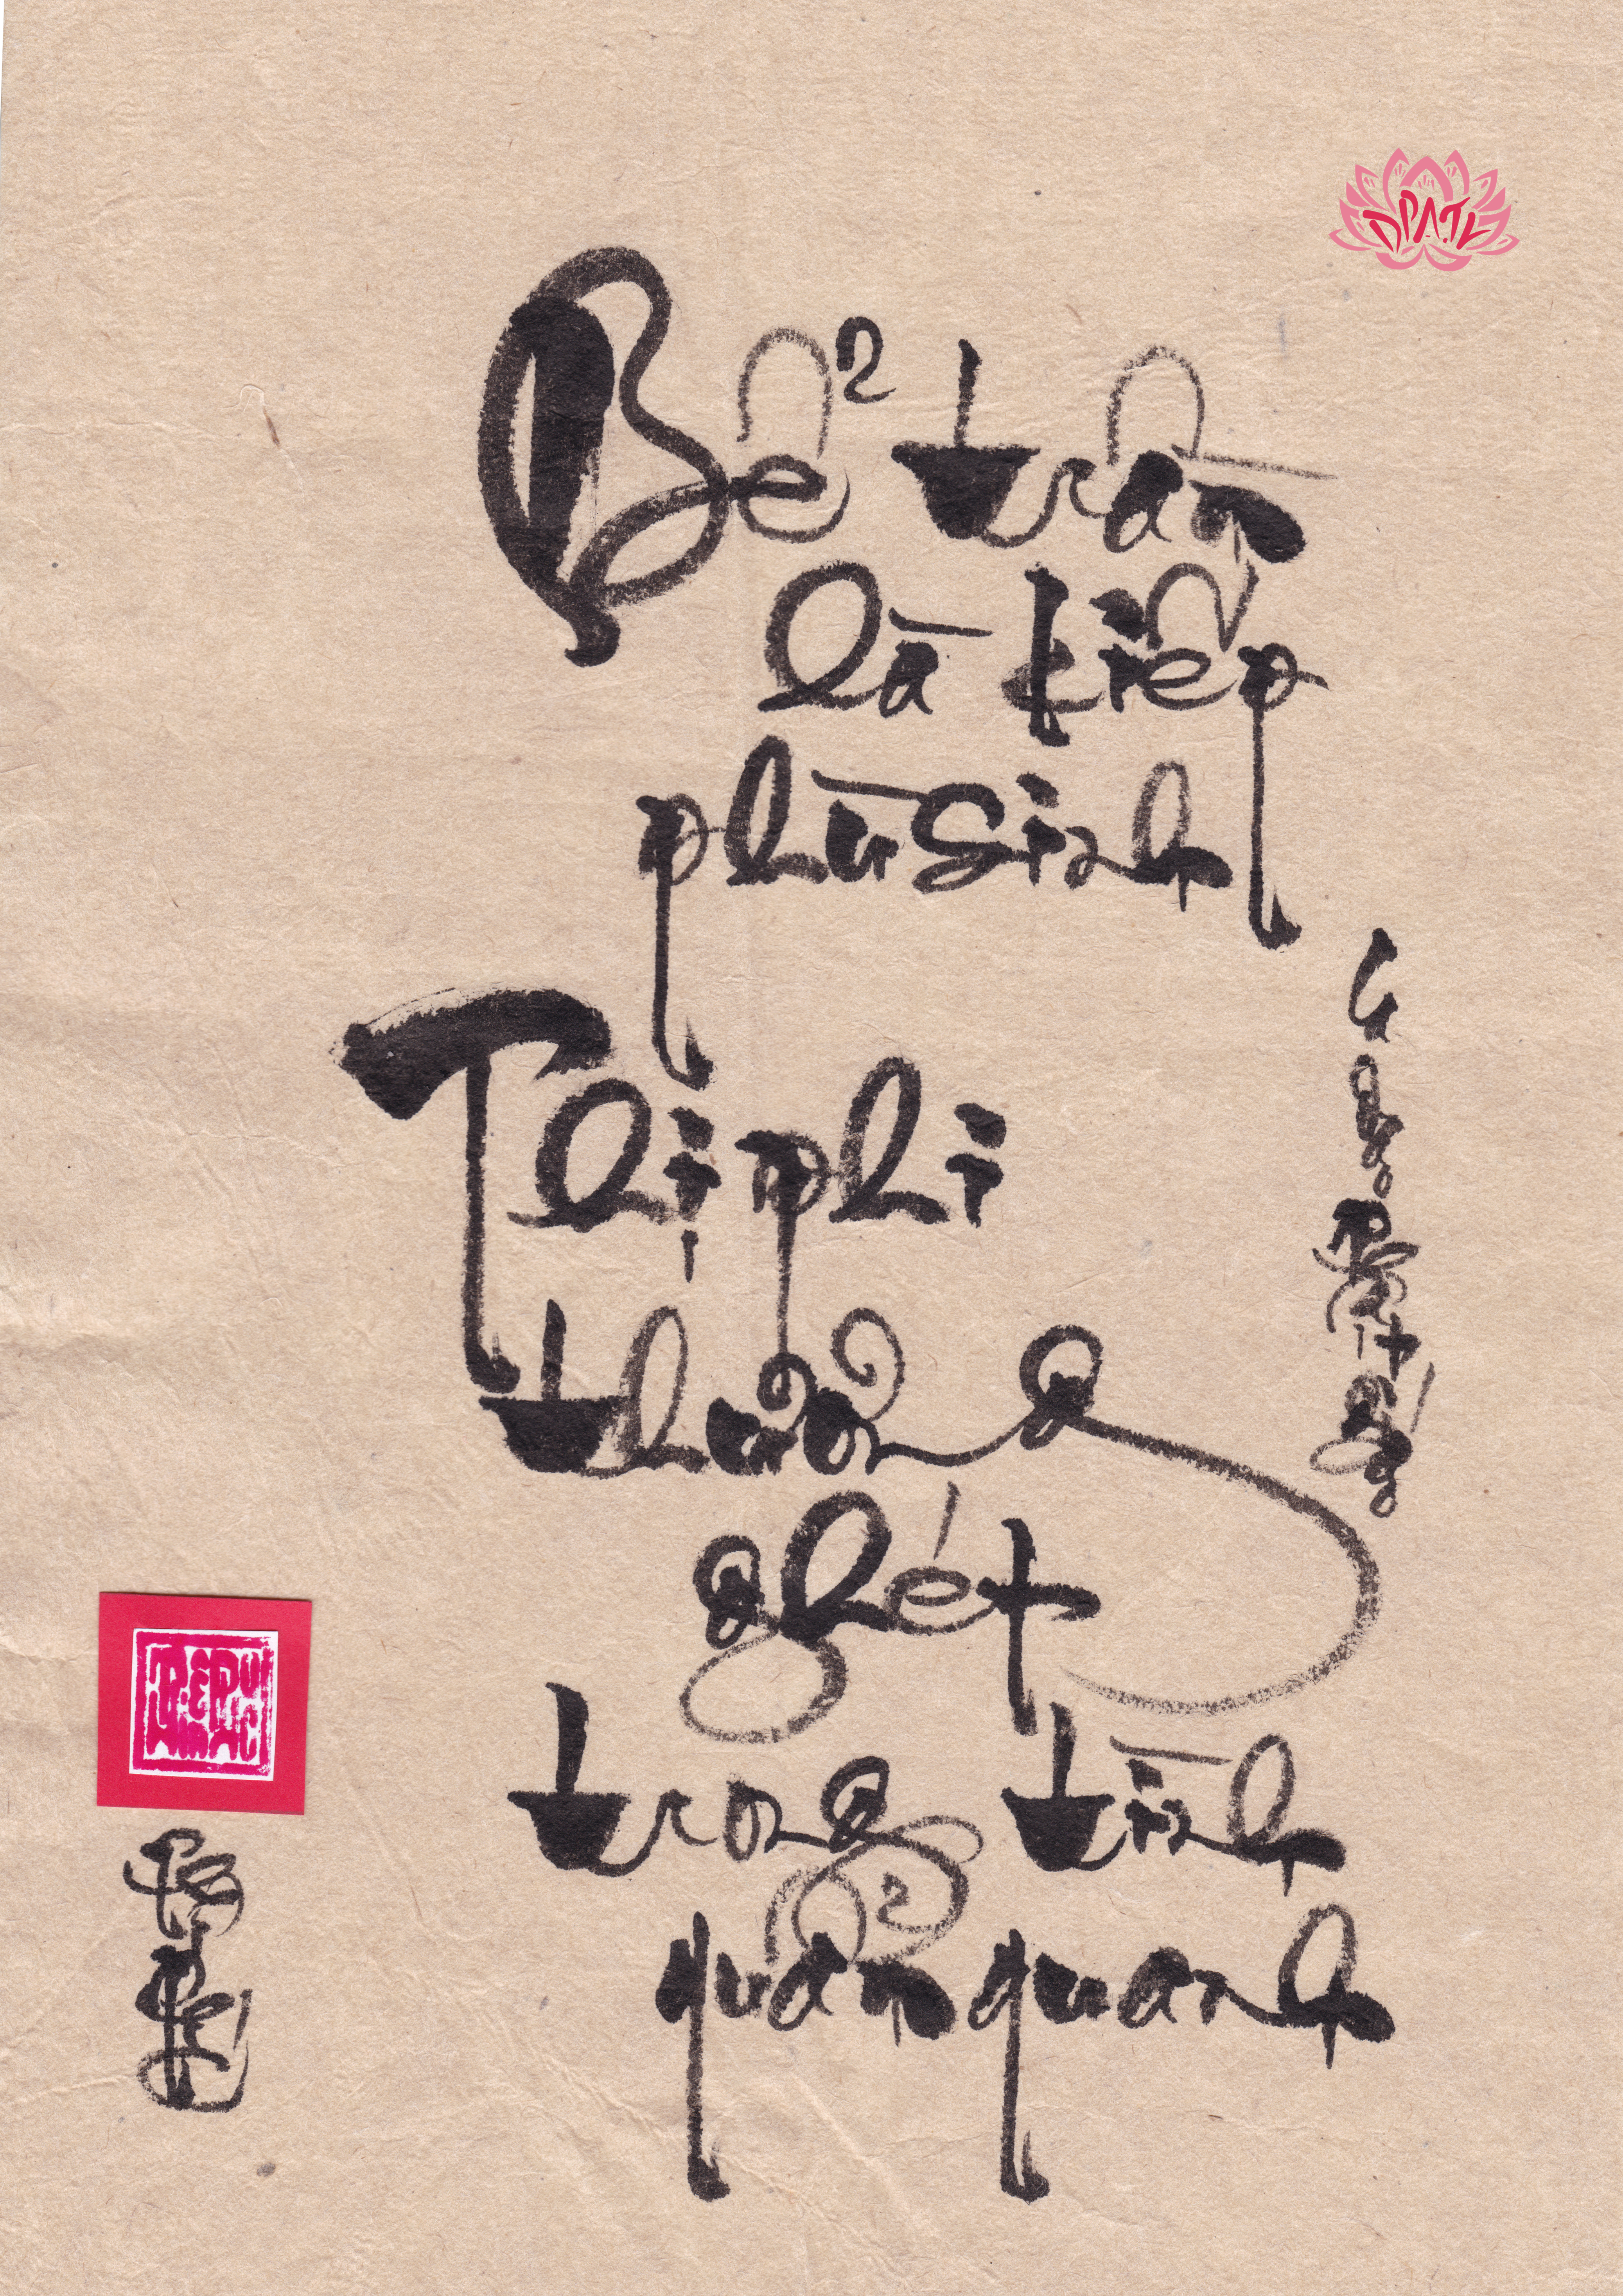 DPATL
Bể trần
là kiếp
phù sinh
Thị phi
thưởng
ghét
trong tình
quẩn quanh